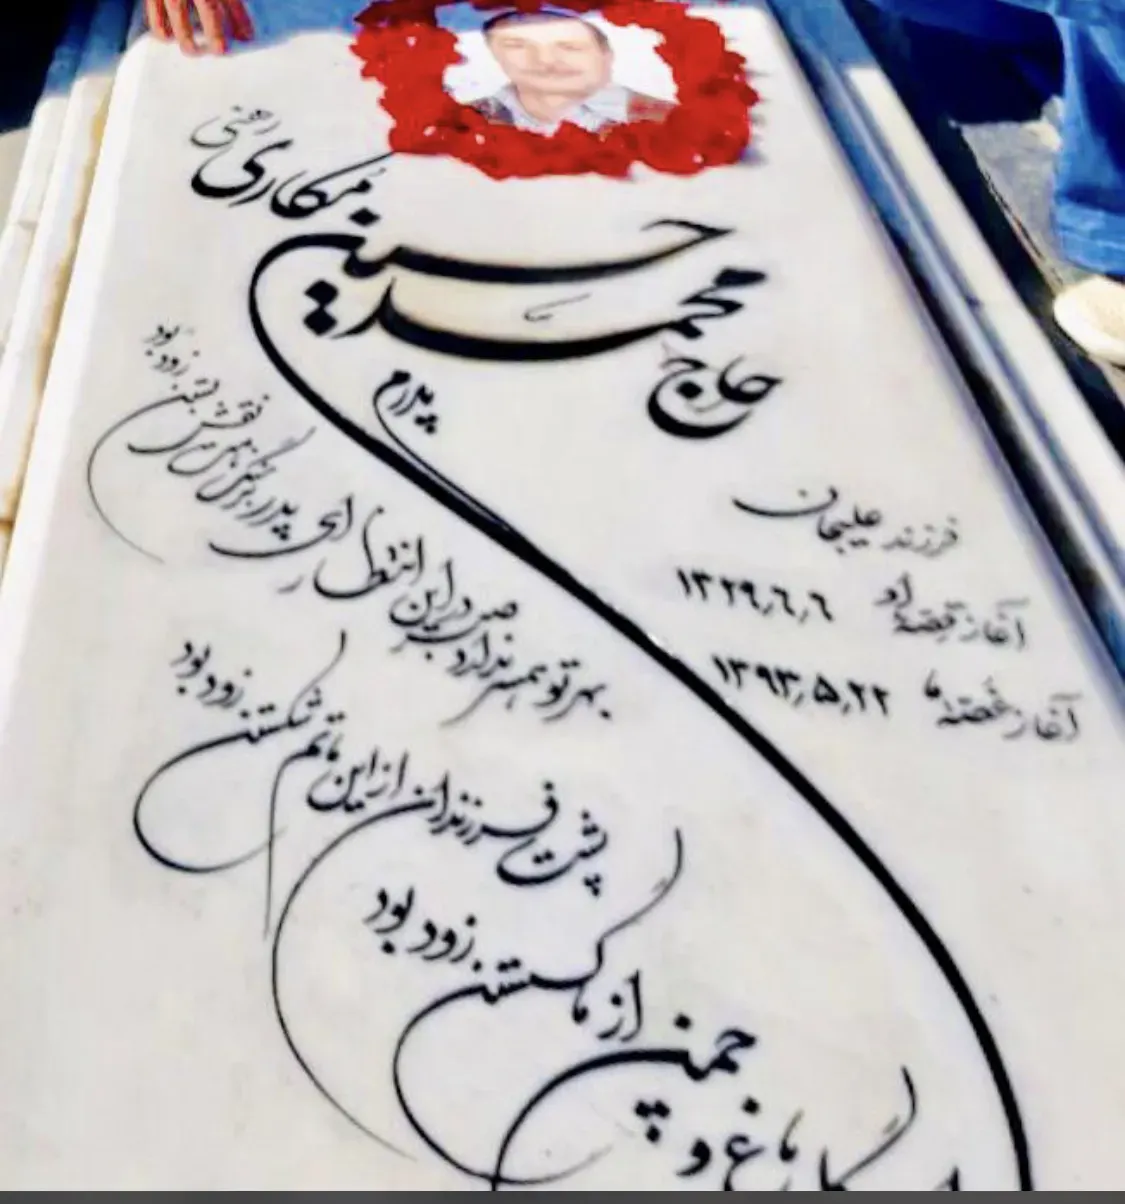 حاج محمد حسین مُکاری
رهنی
فرزند علیجان
آغاز قصهٔ او ۱۳۲۹٫۶٫۶
آغاز غُصّهٔ ما ۱۳۹۳٫۵٫۲۲
پدرم
زود بود
بهر تو همسر ندارد صبر در این انتظار
ای پدر برگ نقش بستن زود بود
پشت فرزندان از این ماتم شکستن زود بود
چمن از ما گسستن زود بود
باغ و